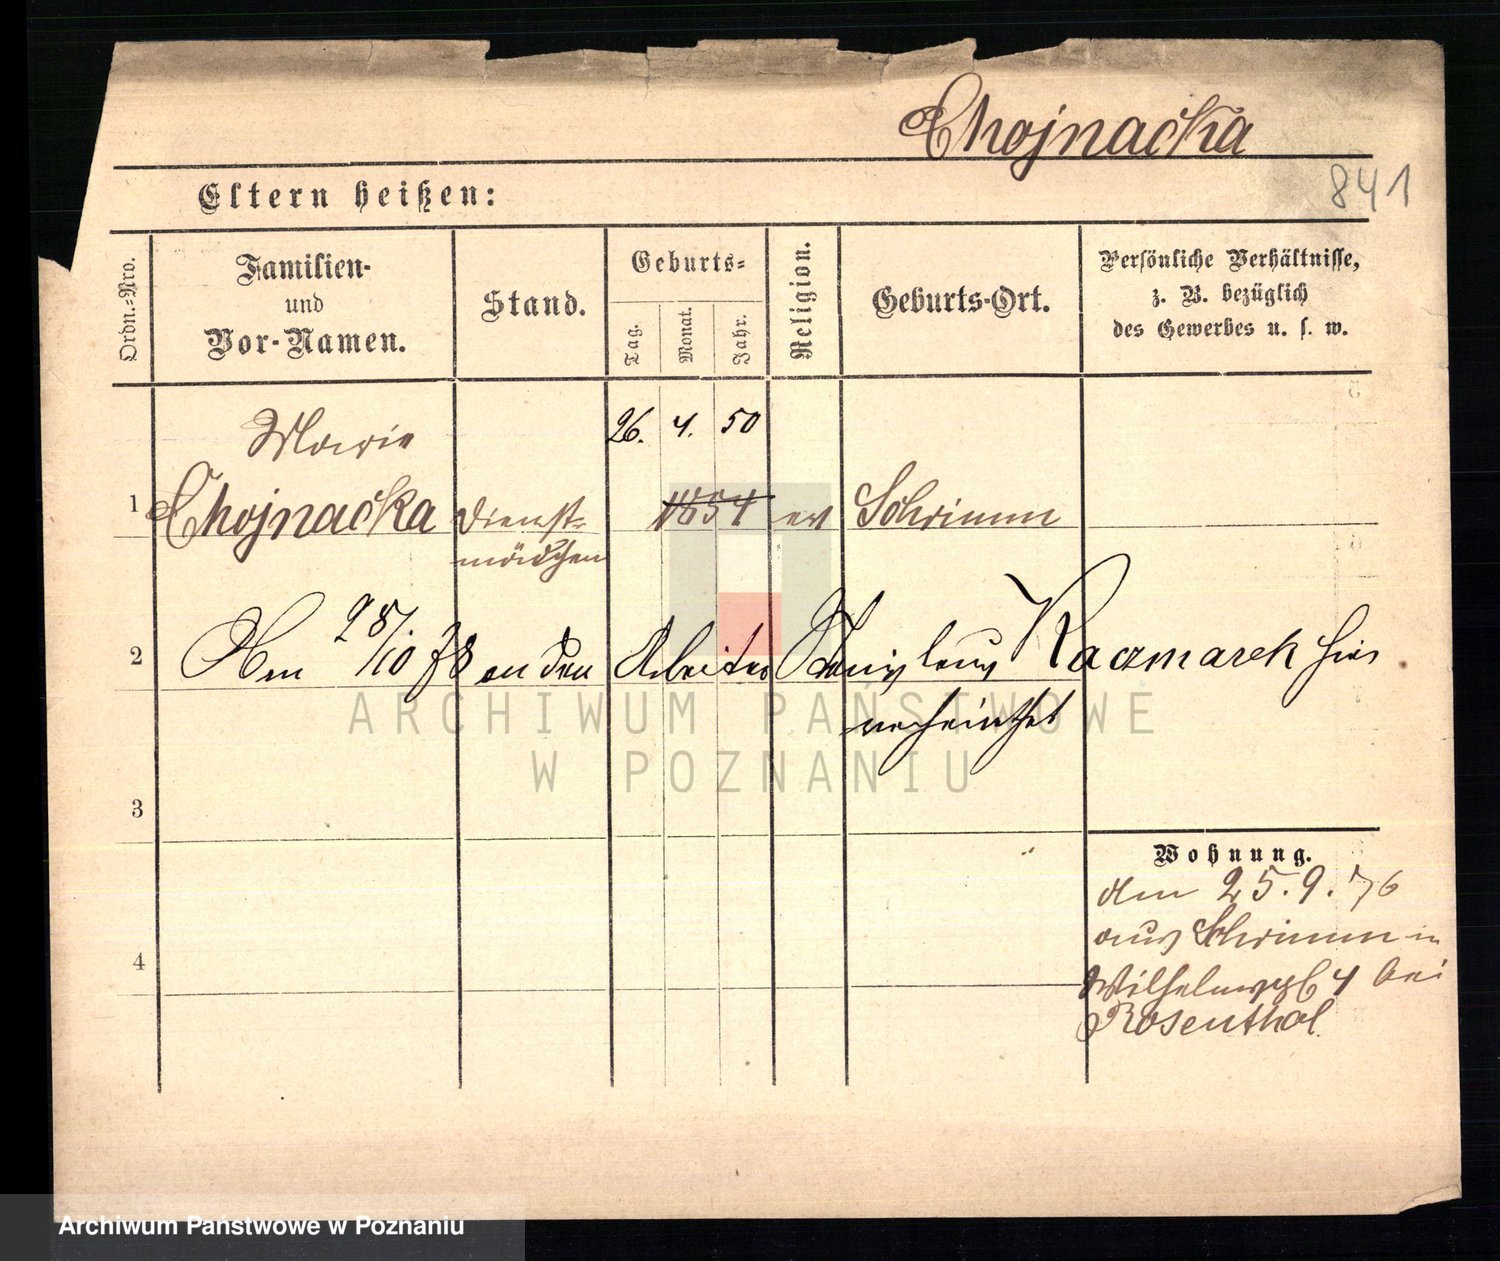 Chojnacka
841
Eltern heißen:
Ordn.-Nro.
Familien-
und
Vor-Namen.
Stand.
Geburts-
Tag.
Monat.
Jahr.
Religion.
Geburts-Ort.
Persönliche Verhältnisse,
z. B. bezüglich
des Gewerbes u. s. w.
Marie
26. 4. 50
1 Chojnacka Dienst- 1854 Schrimm
mädchen
2 Am 28/10 78 an den Arbeiter Stanislaus Kaczmarek hier
verheirathet
3
4
Wohnung.
den 25.9.76
aus Schrimm in
Wilhelmspl 4 bei
Rosenthal
ARCHIWUM PAŃSTWOWE
W POZNANIU
Archiwum Państwowe w Poznaniu